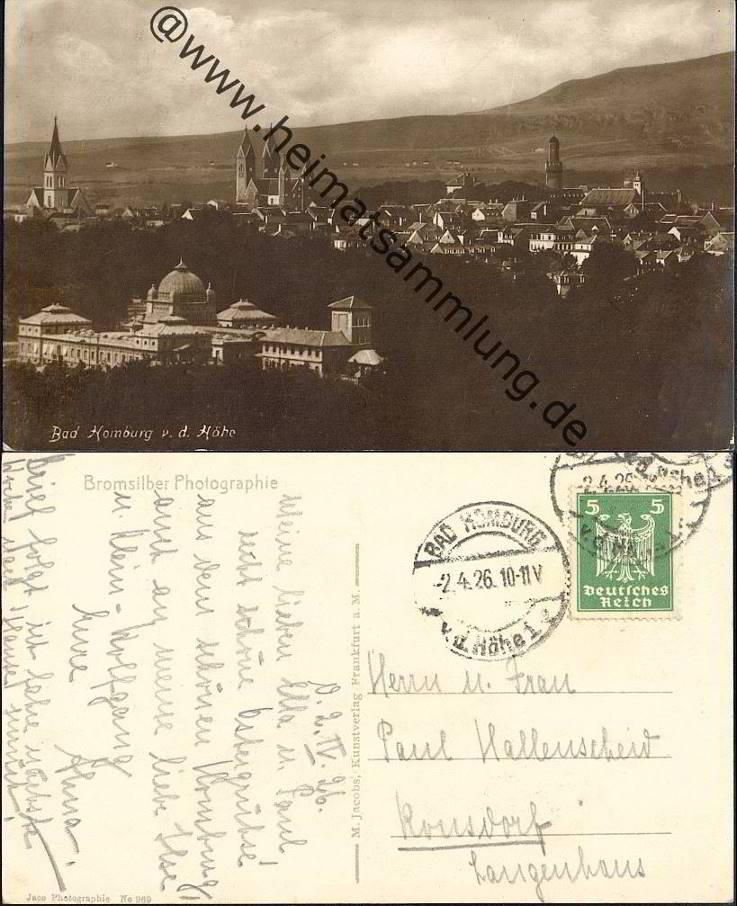 @www.heimatsammlung.de
Bad Homburg v. d. Höhe
Bromsilber Photographie
D. 2. IV. 26.
Meine lieben Ella u. Paul!
recht schöne Ostergrüsse
aus dem schönen Homburg,
auch an meine liebe Ilse
u. Klein-Wolfgang
Eure
Anna.
Brief folgt ich sehe nächste
Woche nach Hause zurück!
M. Jacobs, Kunstverlag Frankfurt a. M.
Jaco Photographie No 969
BAD HOMBURG
-2.4.26. 10-11 V
v.d. Höhe 1
2.4.26
v.d. Höhe 1
5 5
Deutsches
Reich
Herrn u. Frau
Paul Hallenscheid
Ronsdorf
Langenhaus